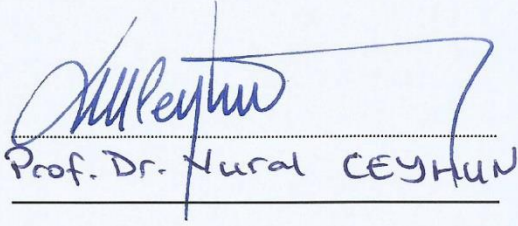 Prof. Dr. Nural CEYHUN